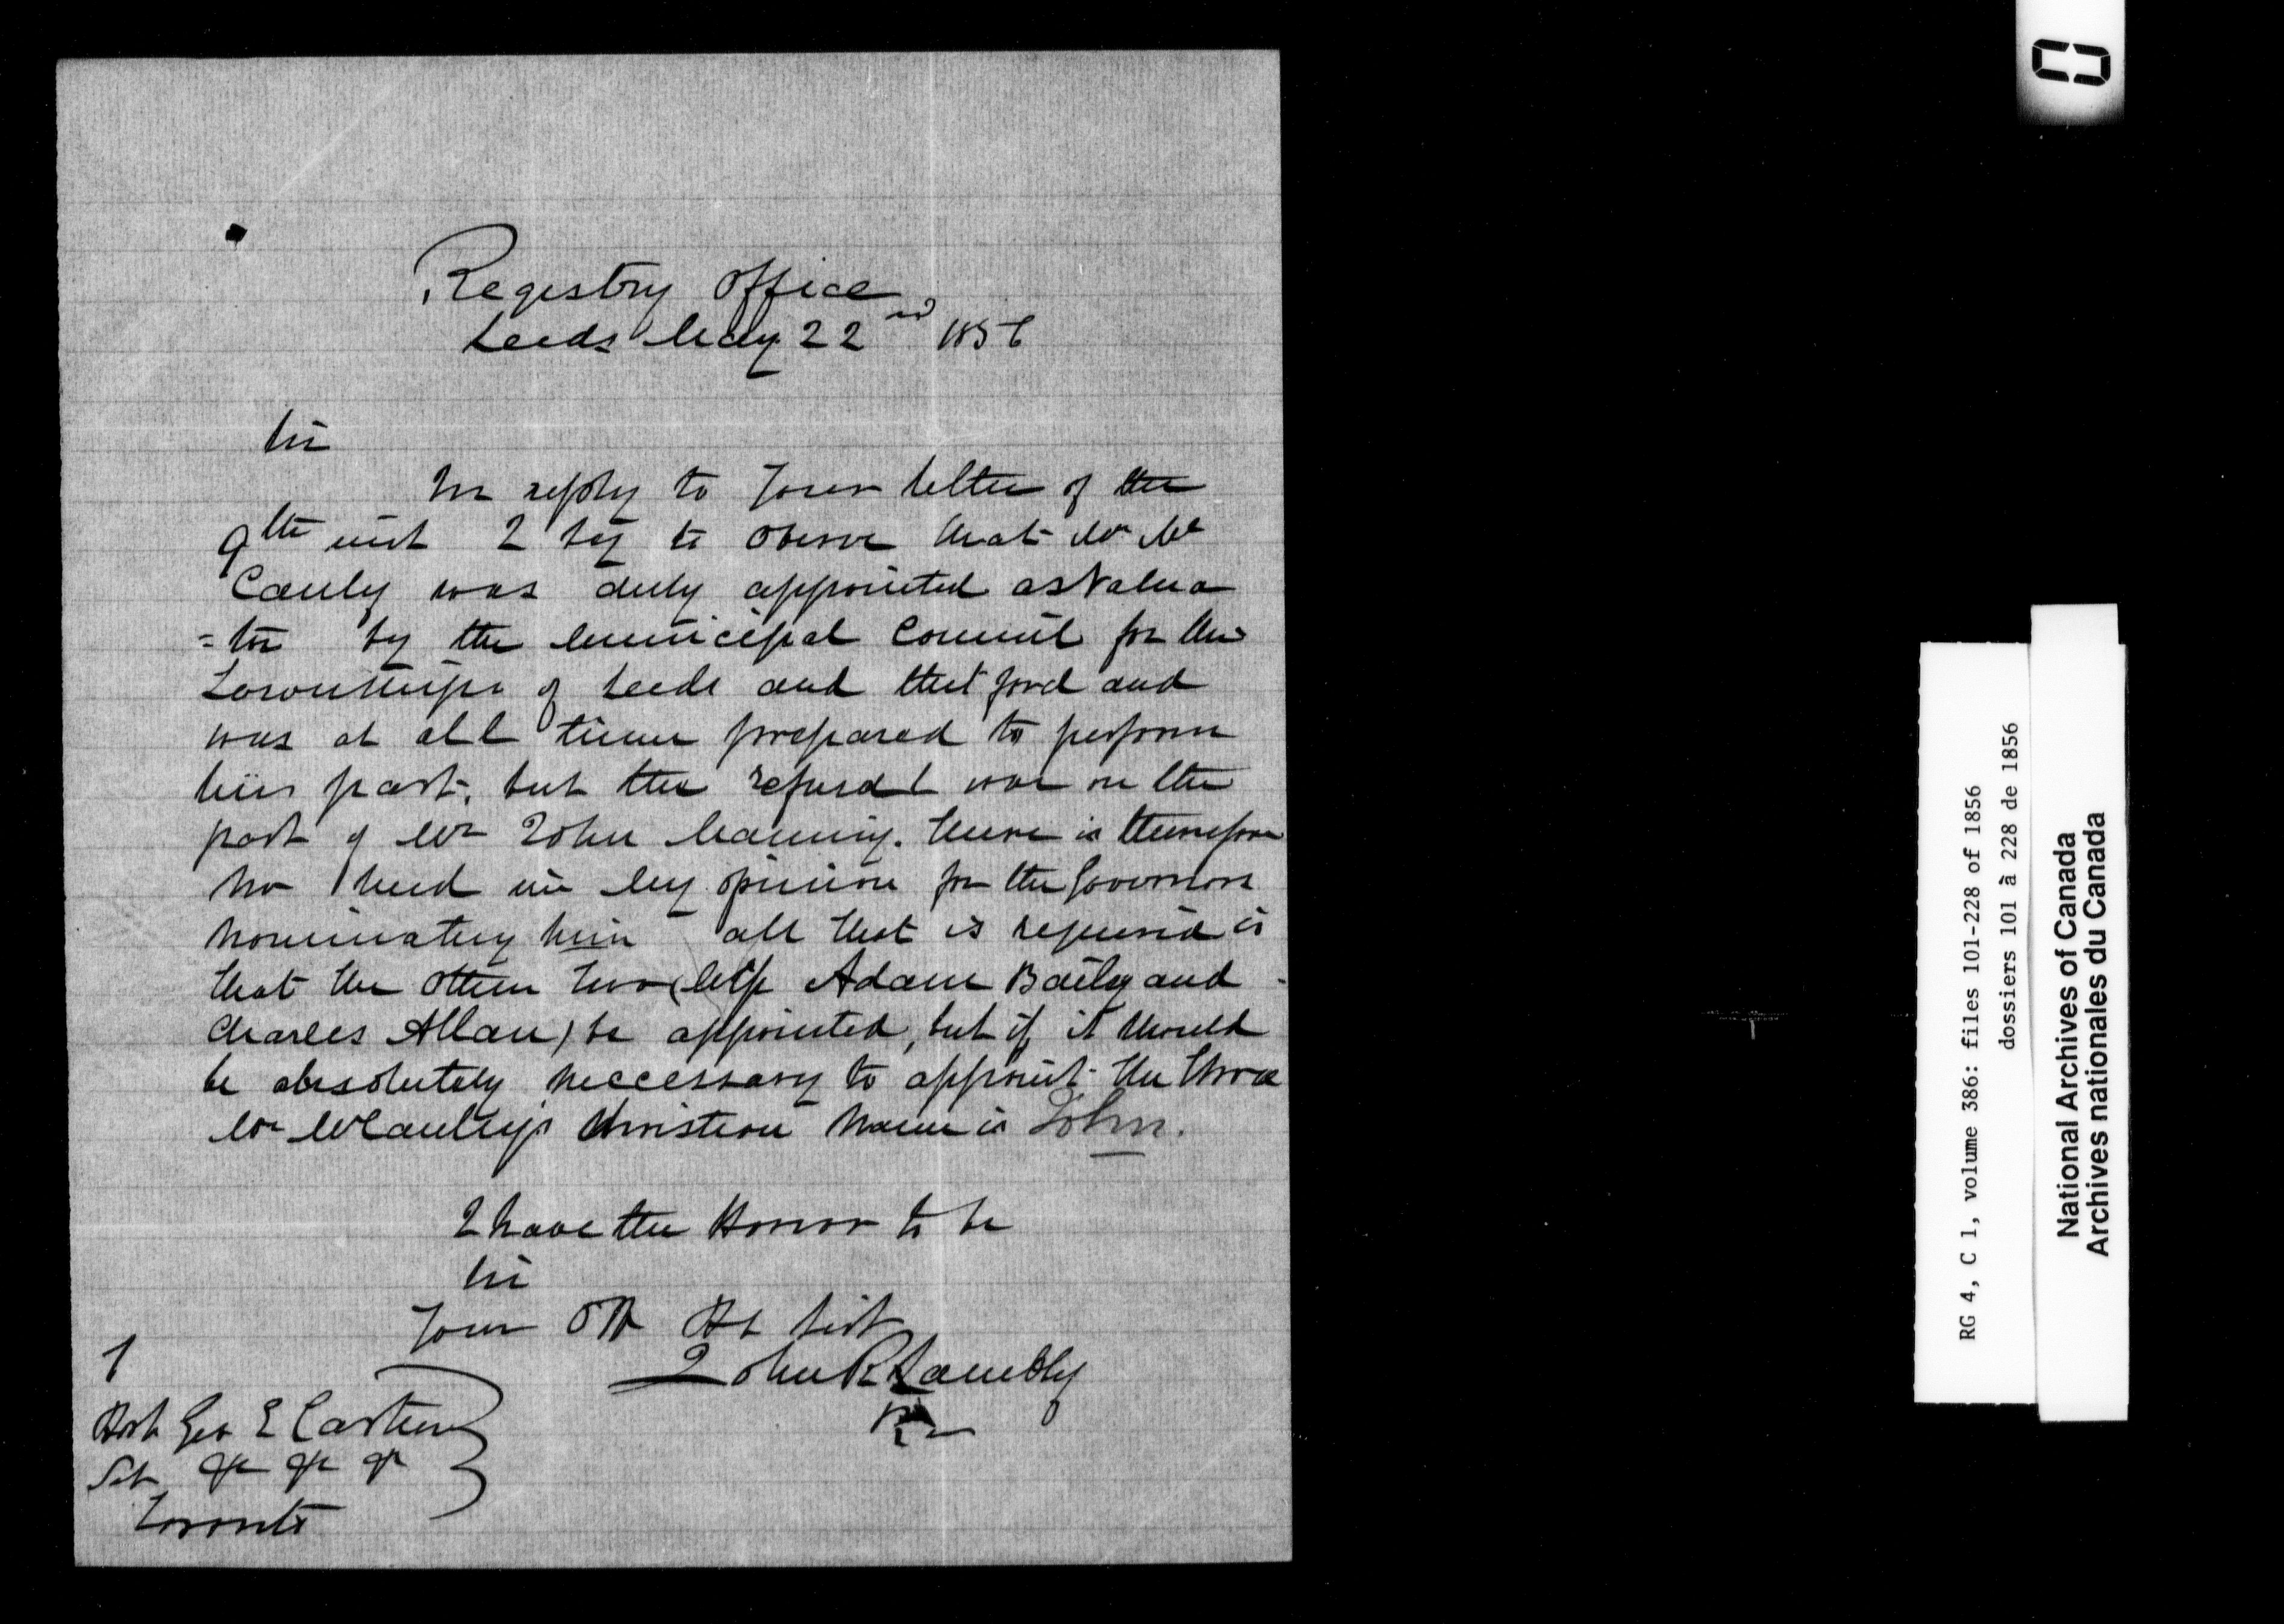 Registry Office
Leeds May 22nd 1856
Sir
In reply to Your letter of the
9th inst I beg to observe that Mr Mc
Cauly was duly appointed as Valua
=tor by the Municipal Council for the
Townships of Leeds and Thetford and
was at all times prepared to perform
his part, but the refusal was on the
part of Mr John Manning. there is therefore
no need in my opinion for the Governors
nominating him all that is required is
that the other two (Messrs Adam Baily and
Charles Allan) be appointed, but if it should
be absolutely neccessary to appoint the three
Mr McCauly's Christian Name is John.
I have the Honor to be
Sir
Your Ob Ht Sert
John R Lambly
Rr
1
Hon Geo E Cartier
Sec &c &c &c
Toronto
RG 4, C 1, volume 386: files 101-228 of 1856
dossiers 101 à 228 de 1856
National Archives of Canada
Archives nationales du Canada